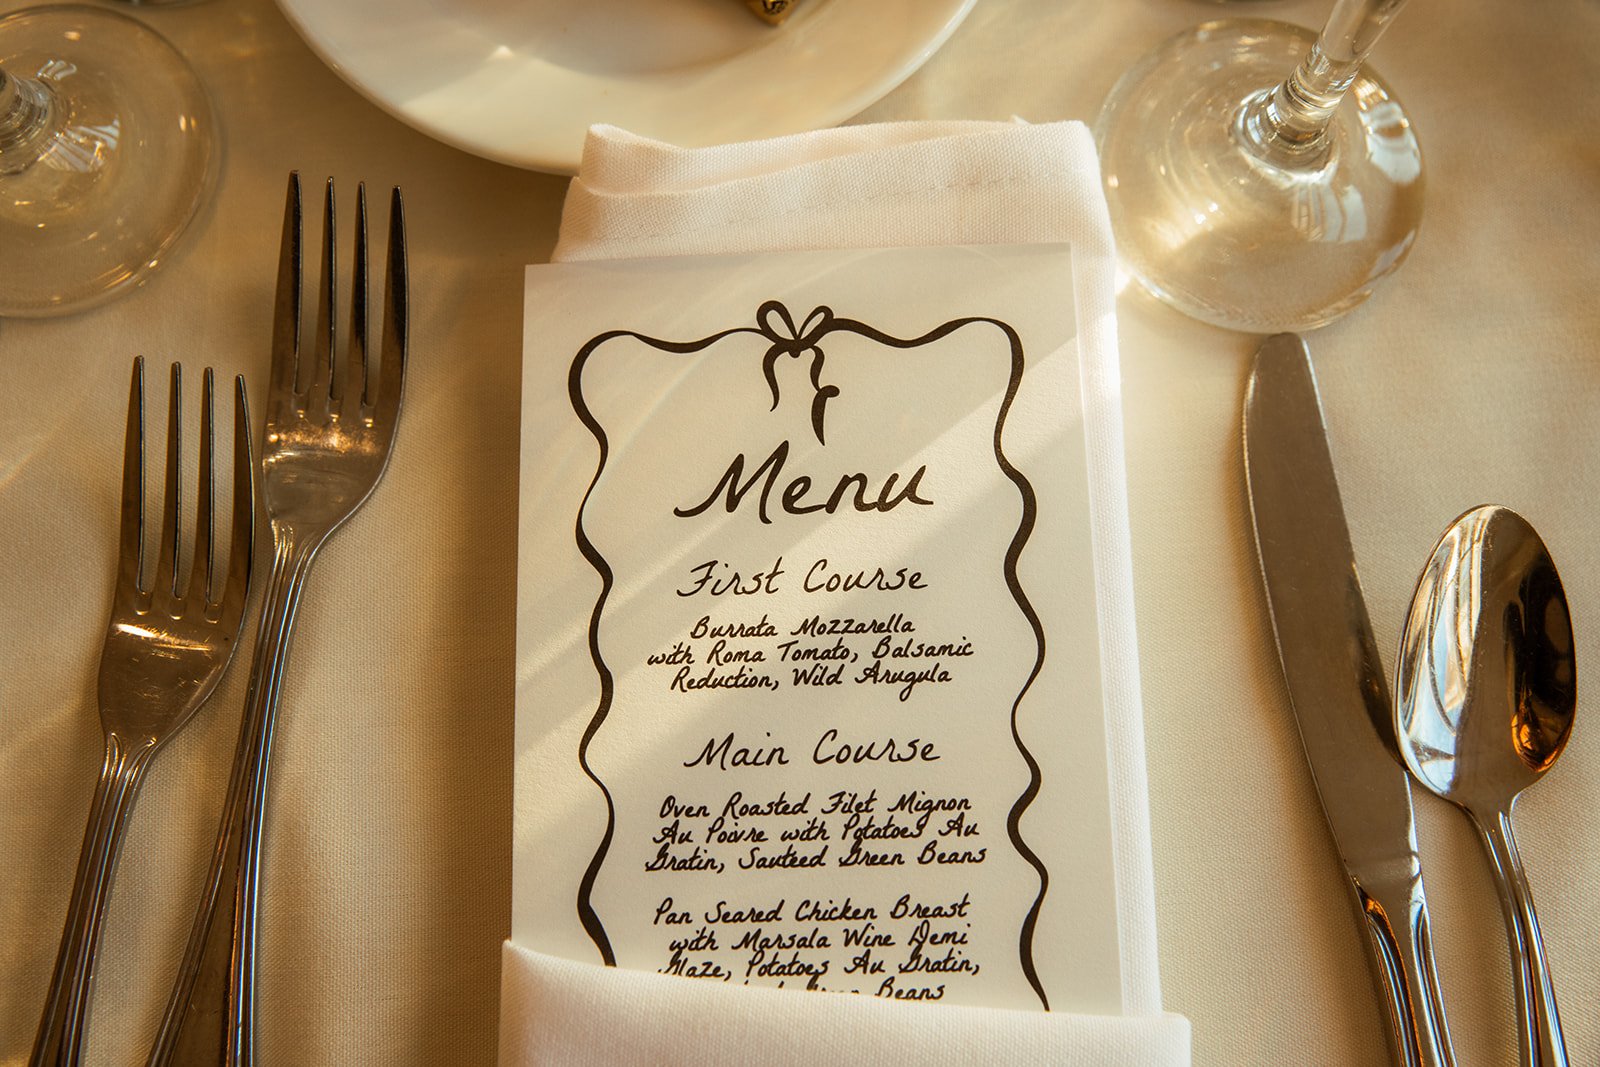 Menu
First Course
Burrata Mozzarella
with Roma Tomato, Balsamic
Reduction, Wild Arugula
Main Course
Oven Roasted Filet Mignon
Au Poivre with Potatoes Au
Gratin, Sauteed Green Beans
Pan Seared Chicken Breast
with Marsala Wine Demi
Glaze, Potatoes Au Gratin,
Green Beans